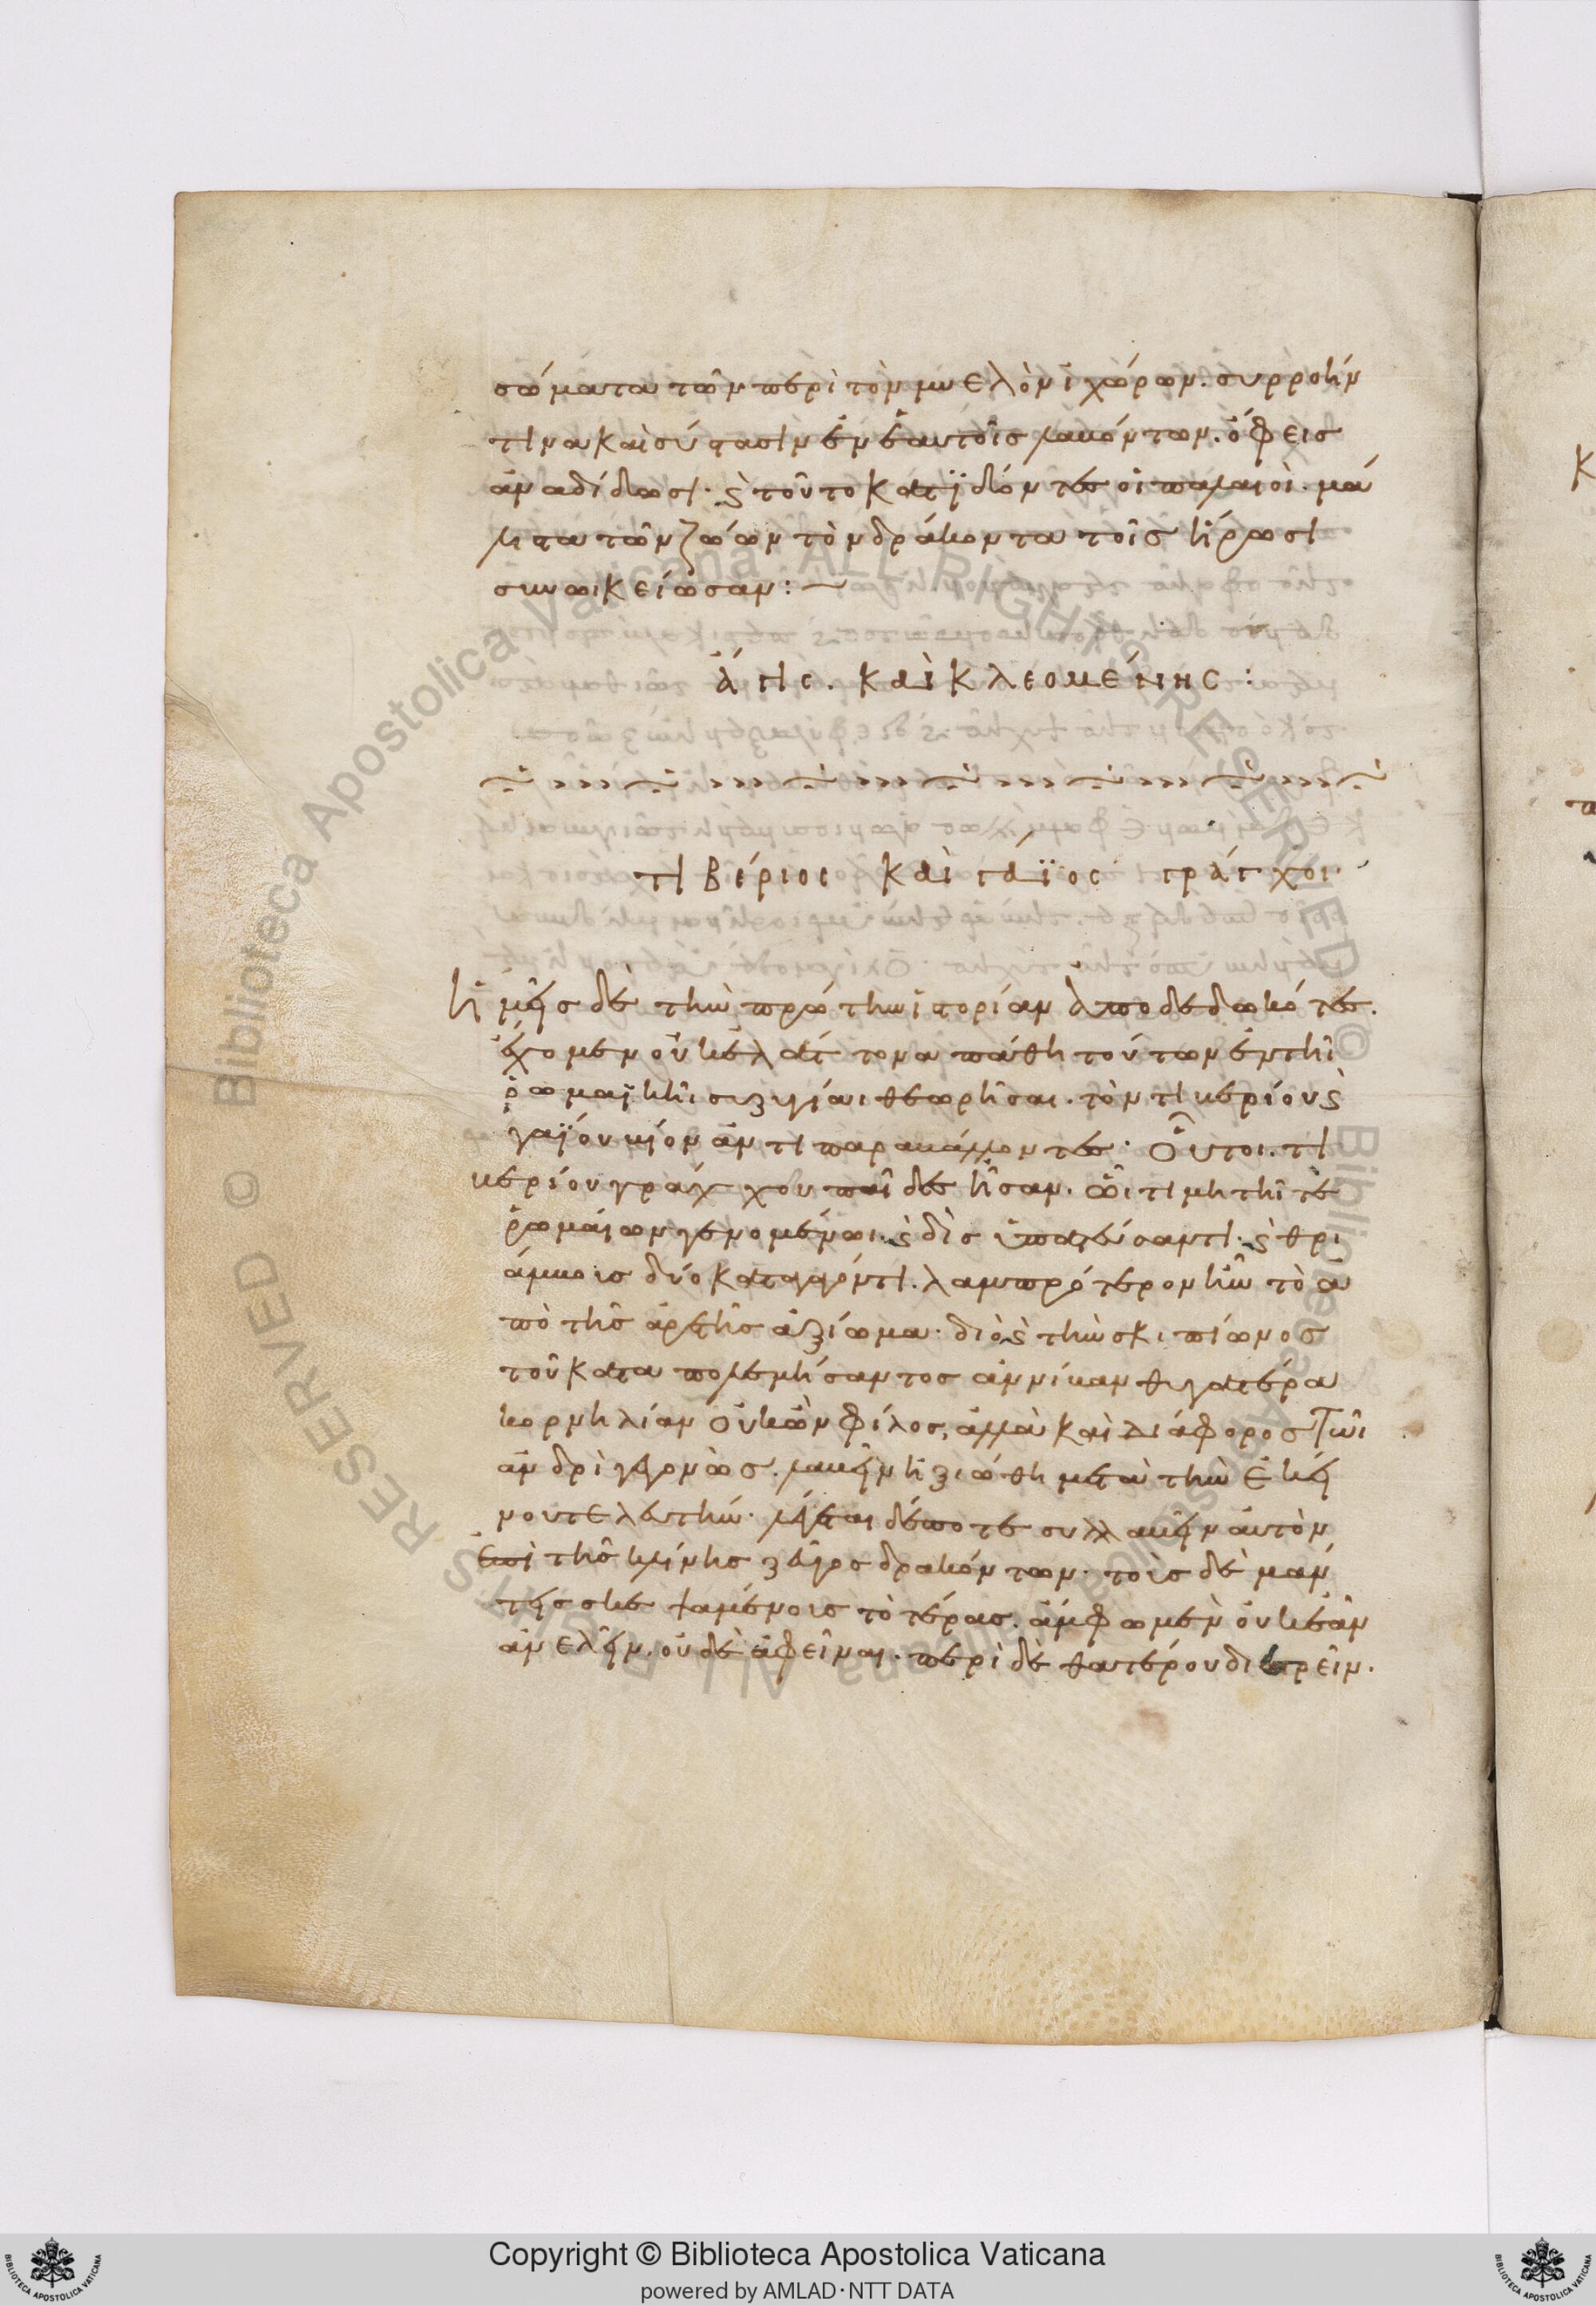 σώματα τῶν περὶ τὸν μυελὸν ἰχώρων. συρροήν
τινα καὶ σύστασιν ἐν ἑαυτοῖς λαβόντων. ὄφεις
ἀναδίδωσι· ϛ τοῦτο κατϊδόντες οἱ παλαιοὶ. μά
λιστα τῶν ζώων τὸν δράκοντα τοῖς ἥρωσι
συνωικείωσαν:
ἆγις. καὶ κλεομένης:
τιβέριος καὶ γάϊος γράγχοι
ἡμεῖς δὲ τὴν πρώτην ἱστορίαν ἀποδεδωκότες.
ἔχομεν οὐκ ἐλάττονα πάθη τούτων ἐν τῆι
ῥωμαϊκῆι συζυγίαι θεωρῆσαι. τὸν τιβερίου ϛ
γαΐου βίον ἀντιπαραβάλλοντες. Οὗτοι. τι
βερίου γράγχου παῖδες ἦσαν. ὧι τιμητῆι τε
ῥωμαίων γενομένωι. ϛ δὶς ὑπατεύσαντι. ϛ θρι
άμβοις δύο καταγαγόντι. λαμπρότερον ἦν τὸ ἀ
πὸ τῆς ἀρετῆς ἀξίωμα. διὸ ϛ τὴν σκιπίωνος
τοῦ καταπολεμήσαντος ἀννίβαν θυγατέρα
κορνηλίαν οὐκ ὢν φίλος, ἀλλὰ καὶ διάφορος τῶι
ἀνδρὶ γεγονὼς. λαβεῖν ἠξιώθη μετὰ τὴν ἐκεί
νου τελευτήν. λέγεται δέ ποτε συλλαβεῖν αὐτὸν
ἐπὶ τῆς κλίνης ζεῦγος δρακόντων. τοὺς δὲ μάν
τεις σκεψαμένους τὸ τέρας. ἄμφω μὲν οὐκ ἐᾶν
ἀνελεῖν. οὐδὲ ἀφεῖναι. περὶ δὲ θατέρου διαιρεῖν.
Copyright © Biblioteca Apostolica Vaticana
powered by AMLAD·NTT DATA